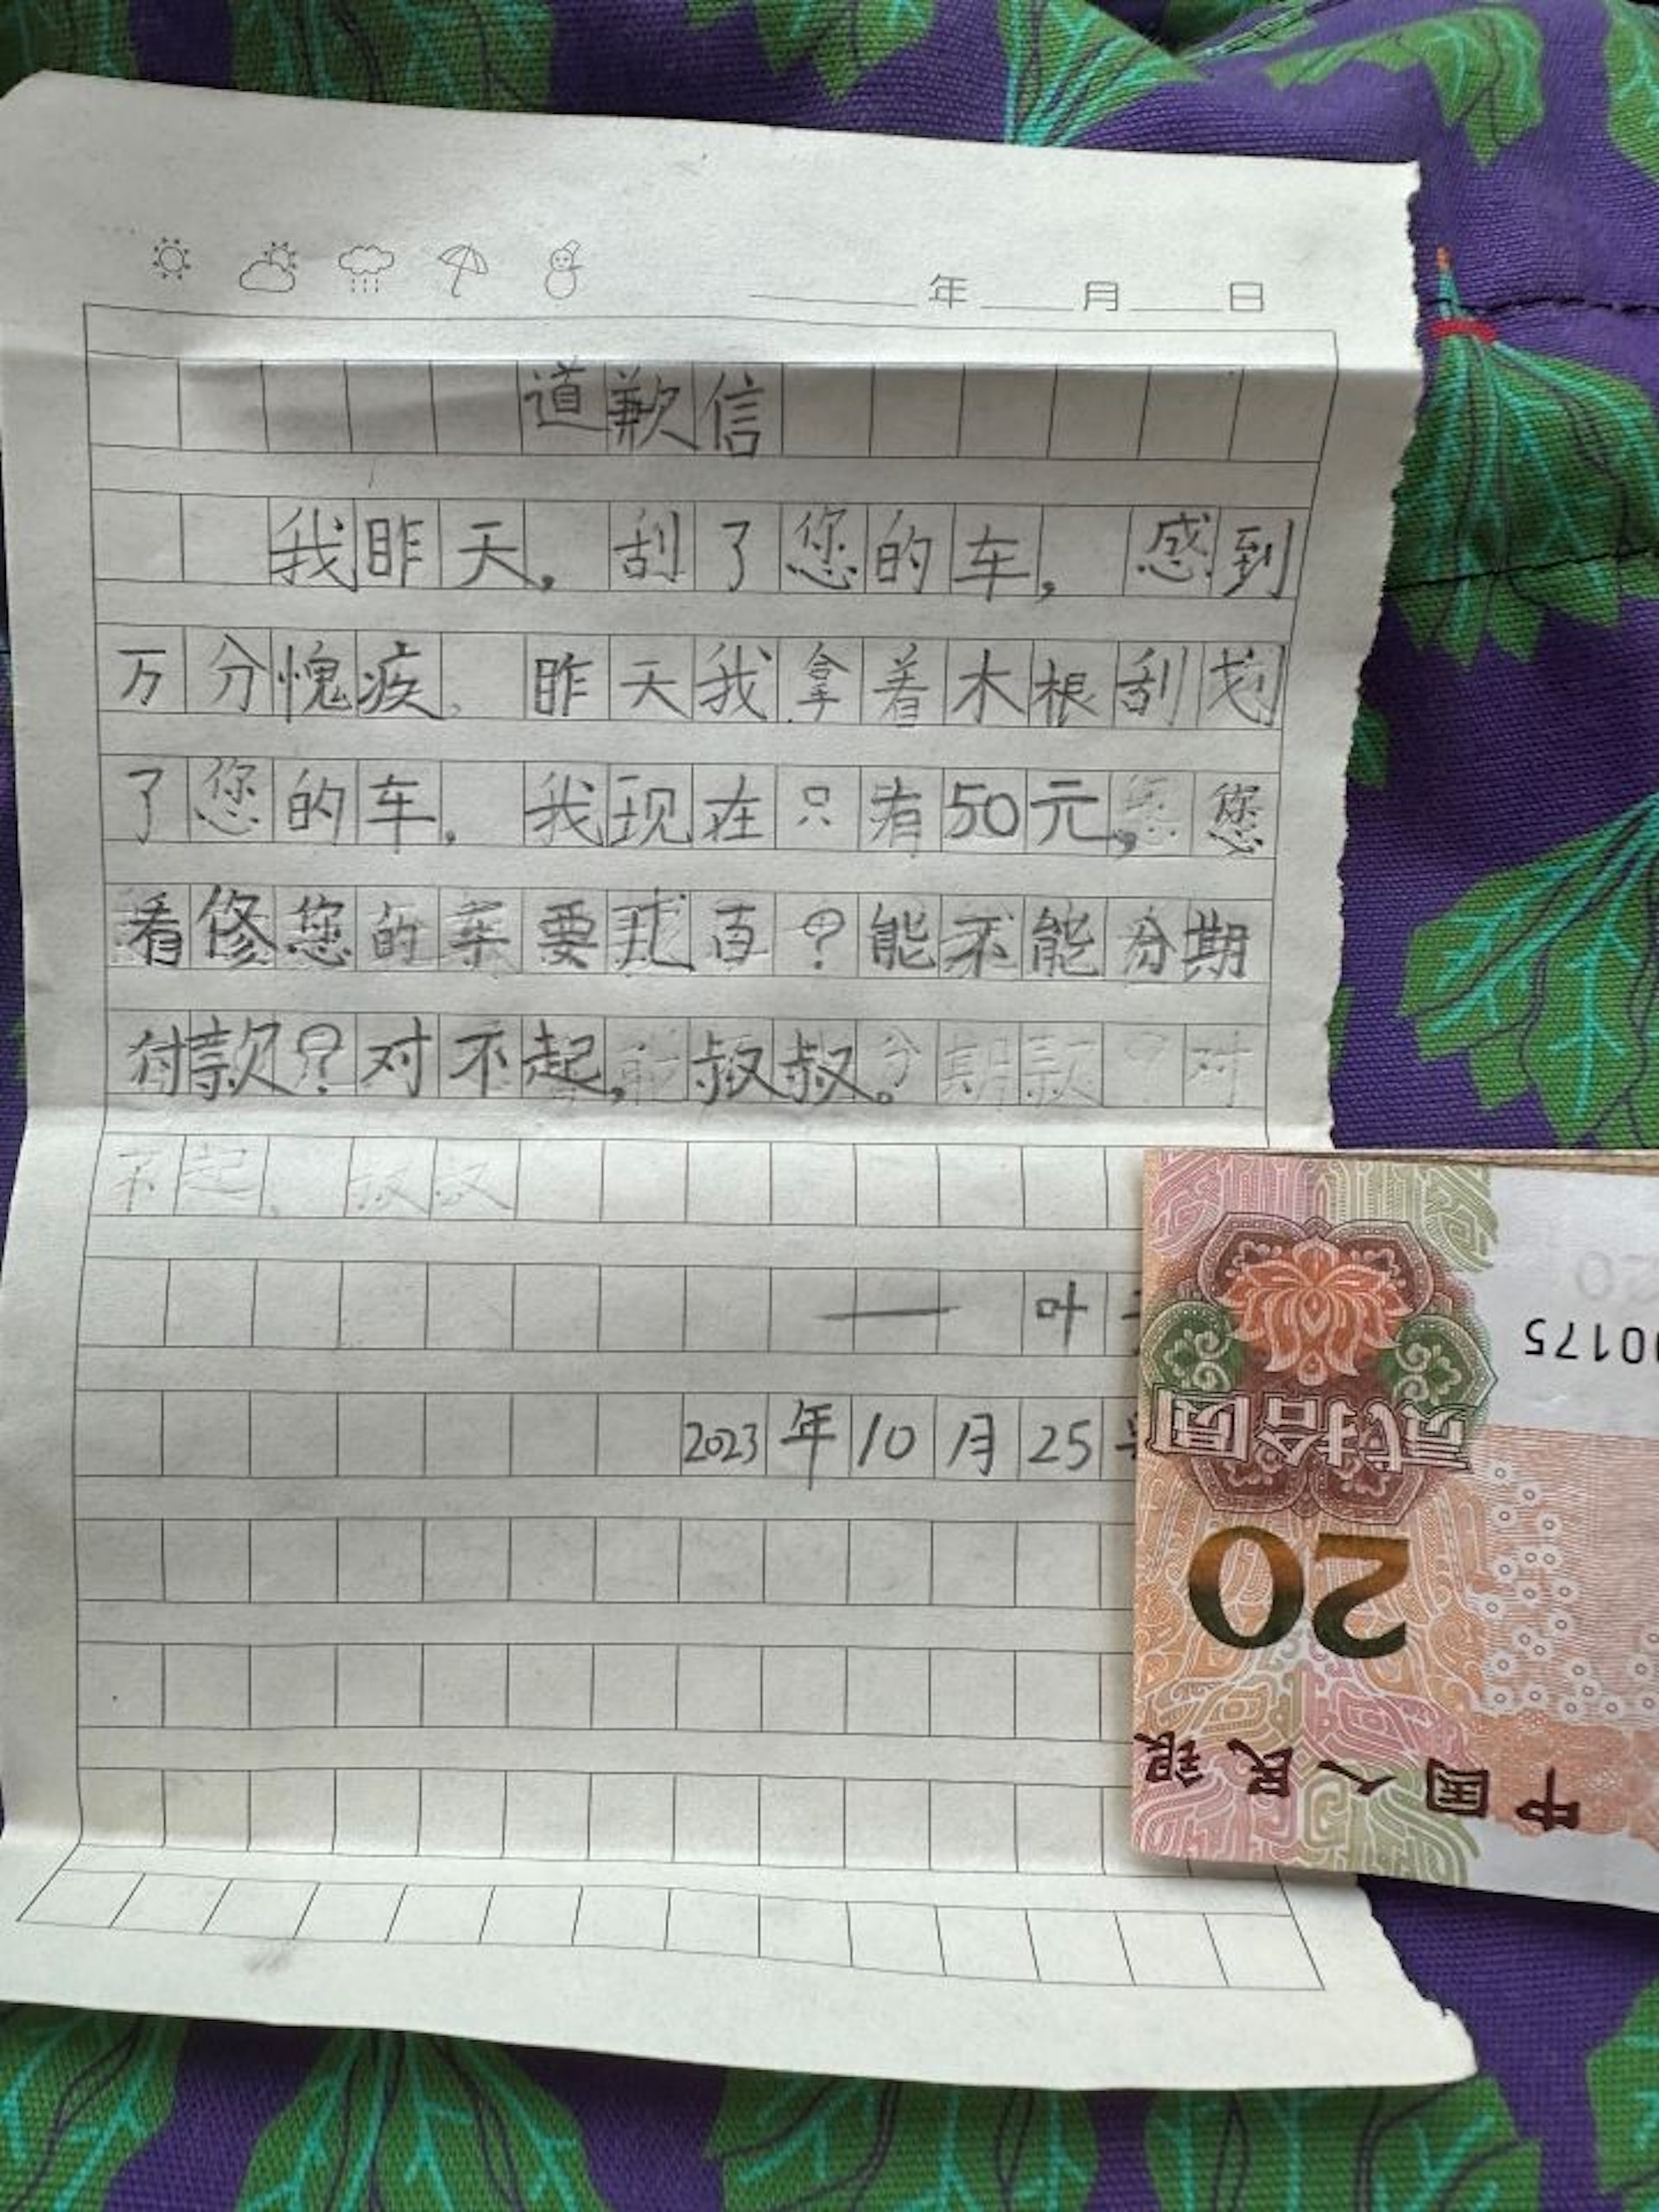 年 月 日
道歉信
我昨天，刮了您的车，感到
万分愧疚。昨天我拿着木根刮划
了您的车。我现在只有50元，您
看修您的车要 ？能不能分期
付款？对不起，叔叔。分期款？对
不起，叔叔
—— 叶
2023年10月25
00175
贰拾圆
20
中国人民银